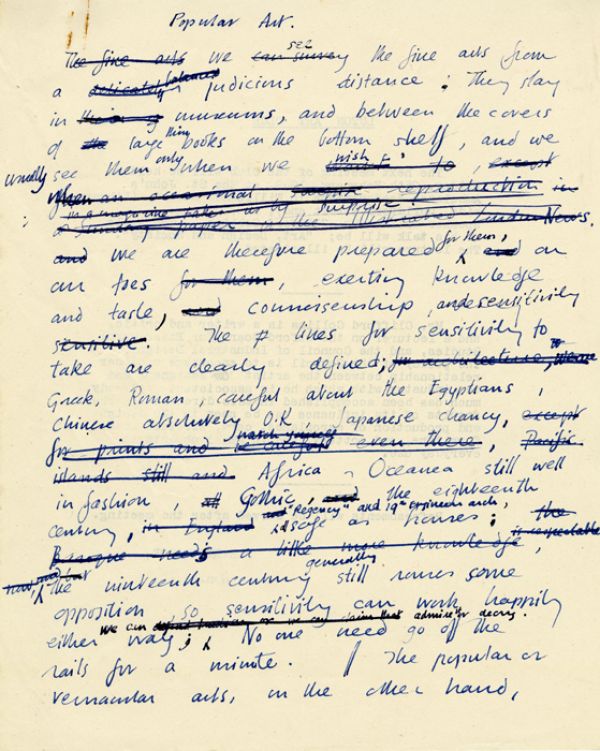 Popular Art.
The fine arts we can survey see the fine arts from
a delicately balanced judicious distance : They stay
in museums, and between the covers
of the large thin books on the bottom shelf, and we
usually see them only when we wish to, except
when an occasional reproduction in
a Sunday paper or the Illustrated London News.
and we are therefore prepared for them, and on
our toes for them, exerting knowledge
and taste, and connoisseurship, and sensitivity
sensitive. The lines for sensitivity to
take are clearly defined; for architecture,
Greek, Roman, careful about the Egyptians,
Chinese absolutely O.K, Japanese chancy, except
for prints and even there, Pacific
islands still and Africa & Oceanea still well
in fashion, Gothic, and the eighteenth
century, in England and "Regency" and 19th engineers arch, safe as houses; the
Baroque needs a little more knowledge, is respectable
now, and but the nineteenth century still generally rouses some
opposition, so sensitivity can work happily
either way; we can defend or we can claim that admire or decry. No one need go off the
rails for a minute. The popular or
vernacular arts, on the other hand,